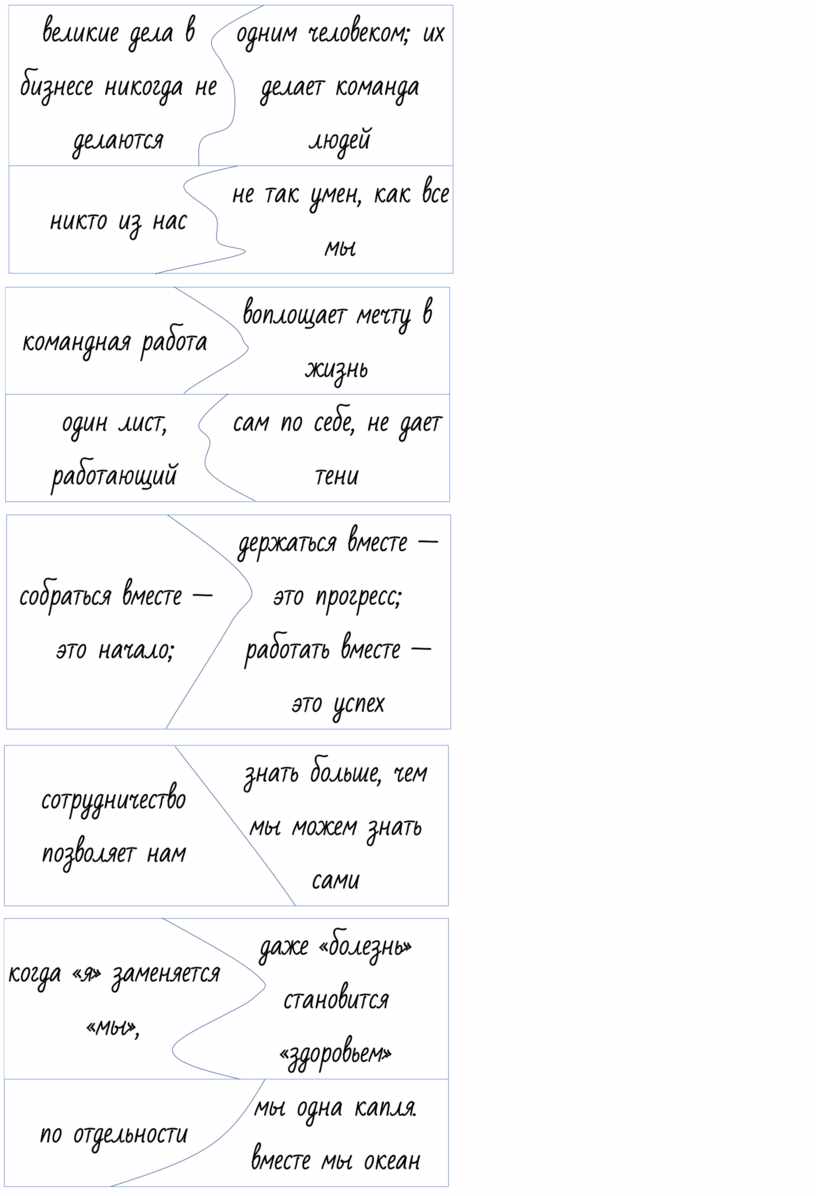 великие дела в
бизнесе никогда не
делаются
одним человеком; их
делает команда
людей
никто из нас
не так умен, как все
мы
командная работа
воплощает мечту в
жизнь
один лист,
работающий
сам по себе, не дает
тени
собраться вместе —
это начало;
держаться вместе —
это прогресс;
работать вместе —
это успех
сотрудничество
позволяет нам
знать больше, чем
мы можем знать
сами
когда «я» заменяется
«мы»,
даже «болезнь»
становится
«здоровьем»
по отдельности
мы одна капля.
вместе мы океан